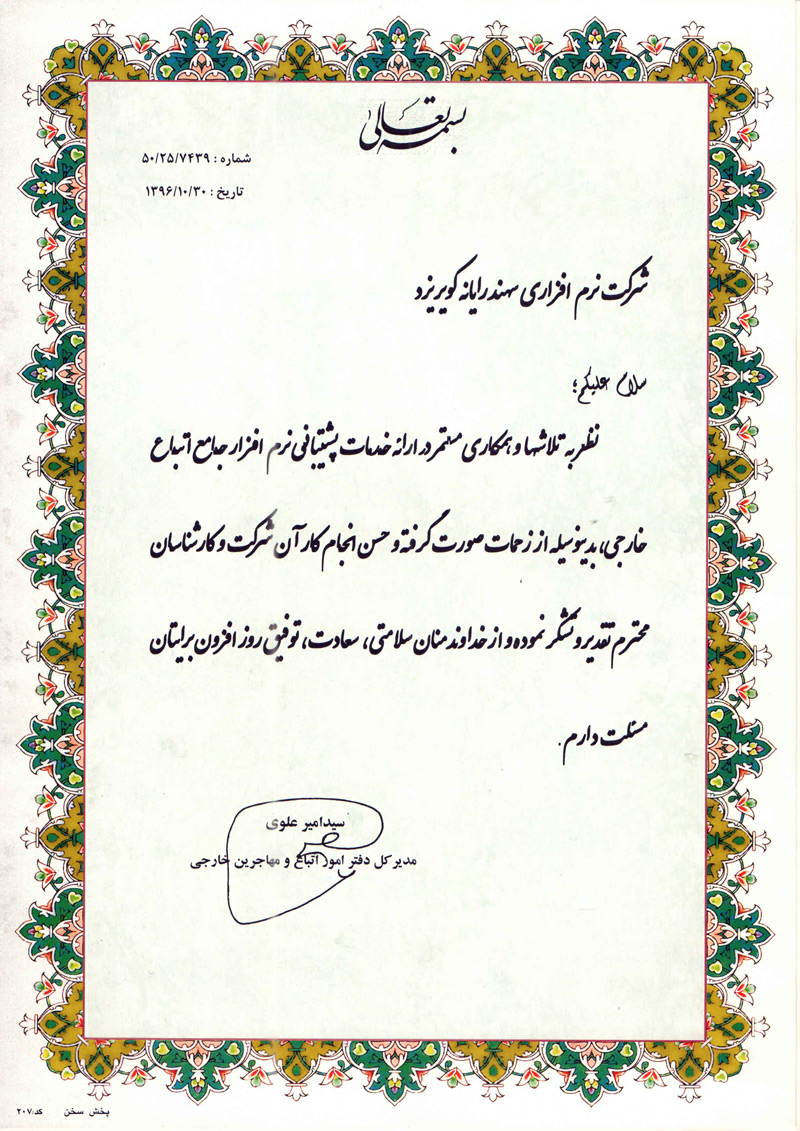 بسمه تعالی
شماره : ۵۰/۲۵/۷۴۳۹
تاریخ : ۱۳۹۶/۱۰/۳۰
شرکت نرم افزاری سهند رایانه کویر یزد
سلام علیکم؛
نظر به تلاشها و همکاری مستمر در ارائه خدمات پشتیبانی نرم افزار جامع اتباع
خارجی، بدینوسیله از زحمات صورت گرفته و حسن انجام کار آن شرکت و کارشناسان
محترم تقدیر و تشکر نموده و از خداوند منان سلامتی، سعادت، توفیق روز افزون برایتان
مسئلت دارم.
سیدامیر علوی
مدیر کل دفتر امور اتباع و مهاجرین خارجی
پخش سخن کد:۲۰۷